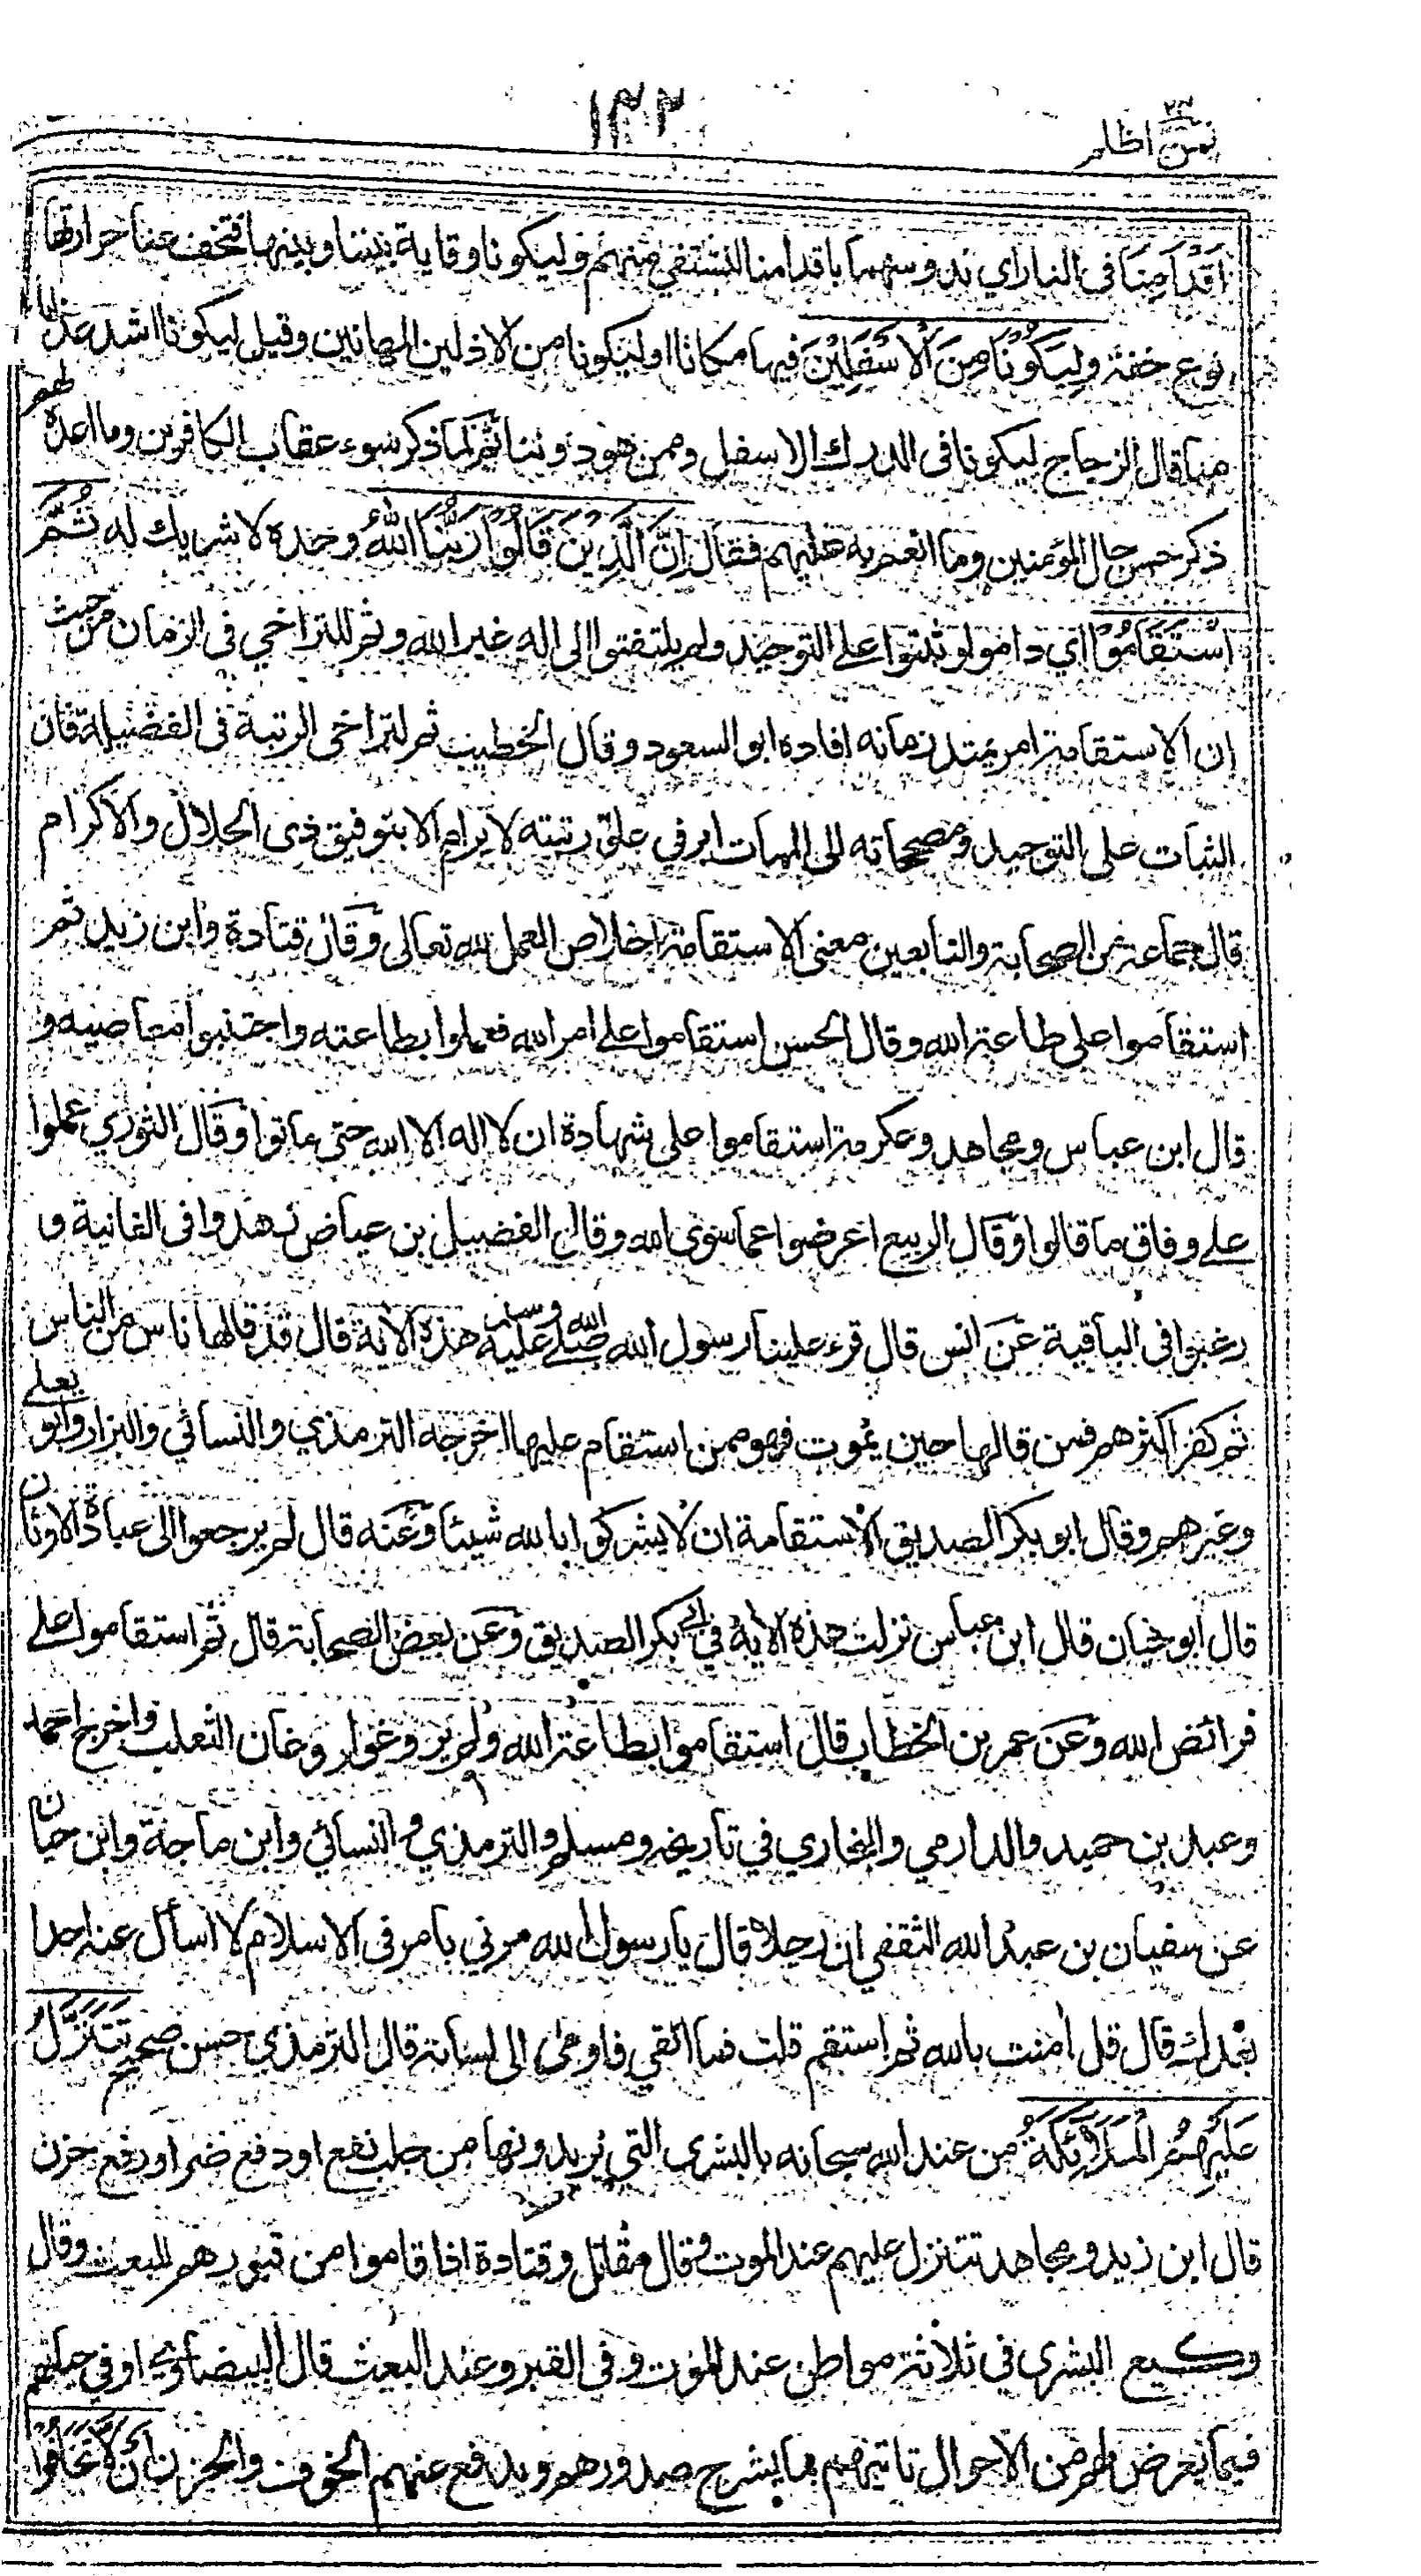 ١٣٢
فمن اظلم ٢٤
اَقْدَامِنَا فى النار اي ندوسهما باقدامنا لنشتفي منهم وليكونا وقاية بيننا وبينها فتخف عنا حرارتها
نوع خفة وَلِيَكُوْنَا مِنَ الْاَسْفَلِيْنَ فيها مكانا او ليكونا من الاذلين المهانين وقيل ليكونا اشد عذابا
منا قال الزجاج ليكونا فى الدرك الاسفل وممن هو دوننا ثم لما ذكر سوء عقاب الكافرين وما اعده لهم
ذكر حسن حال المؤمنين وما انعم به عليهم فقال اِنَّ الَّذِيْنَ قَالُوْا رَبُّنَا اللّٰهُ وحده لا شريك له ثُمَّ
اسْتَقَامُوْا اي داموا وثبتوا على التوحيد ولم يلتفتوا الى اله غير الله وثم للتراخي فى الزمان من حيث
ان الاستقامة امر يمتد زمانه افاده ابو السعود وقال الخطيب ثم لتراخى الرتبة فى الفضيلة فان
الثبات على التوحيد ومصححاته الى الممات امر في علو رتبته لا يرام الا بتوفيق ذى الجلال والاكرام
قال جماعة من الصحابة والتابعين معنى الاستقامة اخلاص العمل لله تعالى وقال قتادة وابن زيد ثم
استقاموا على طاعة الله وقال الحسن استقاموا على امر الله فعملوا بطاعته واجتنبوا معاصيه و
قال ابن عباس ومجاهد وعكرمة استقاموا على شهادة ان لا اله الا الله حتى ماتوا وقال الثوري عملوا
على وفاق ما قالوا وقال الربيع اعرضوا عما سوى الله وقال الفضيل بن عياض زهدوا فى الفانية و
رغبوا فى الباقية عن انس قال قرء علينا رسول الله صلى الله عليه وسلم هذه الاية قال قد قالها ناس من الناس
ثم كفر اكثرهم فمن قالها حين يموت فهو ممن استقام عليها اخرجه الترمذي والنسائي والبزار وابو يعلى
وغيرهم وقال ابو بكر الصديق الاستقامة ان لا يشركوا بالله شيئا وعنه قال لم يرجعوا الى عبادة الاوثان
قال ابو حيان قال ابن عباس نزلت هذه الاية في ابي بكر الصديق وعن بعض الصحابة قال ثم استقاموا على
فرائض الله وعن عمر بن الخطاب قال استقاموا بطاعة الله ولم يروغوا روغان الثعلب واخرج احمد
وعبد بن حميد والدارمي والبخاري في تاريخه ومسلم والترمذي والنسائي وابن ماجة وابن حبان
عن سفيان بن عبد الله الثقفي ان رجلا قال يا رسول الله مرني بامر فى الاسلام لا اسأل عنه احدا
بعدك قال قل امنت بالله ثم استقم قلت فما اتقي فاومى الى لسانه قال الترمذي حسن صحيح تَتَنَزَّلُ
عَلَيْهِمُ الْمَلَائِكَةُ من عند الله سبحانه بالبشرى التي يريدونها من جلب نفع او دفع ضر او رفع حزن
قال ابن زيد ومجاهد تتنزل عليهم عند الموت وقال مقاتل وقتادة اذا قاموا من قبورهم للبعث وقال
وكيع البشرى في ثلاثة مواطن عند الموت وفى القبر وعند البعث قال البيضاوي او في حياتهم
فيما يعرض لهم من الاحوال تاتيهم بما يشرح صدورهم ويدفع عنهم الخوف والحزن اَنْ لَّا تَخَافُوْا